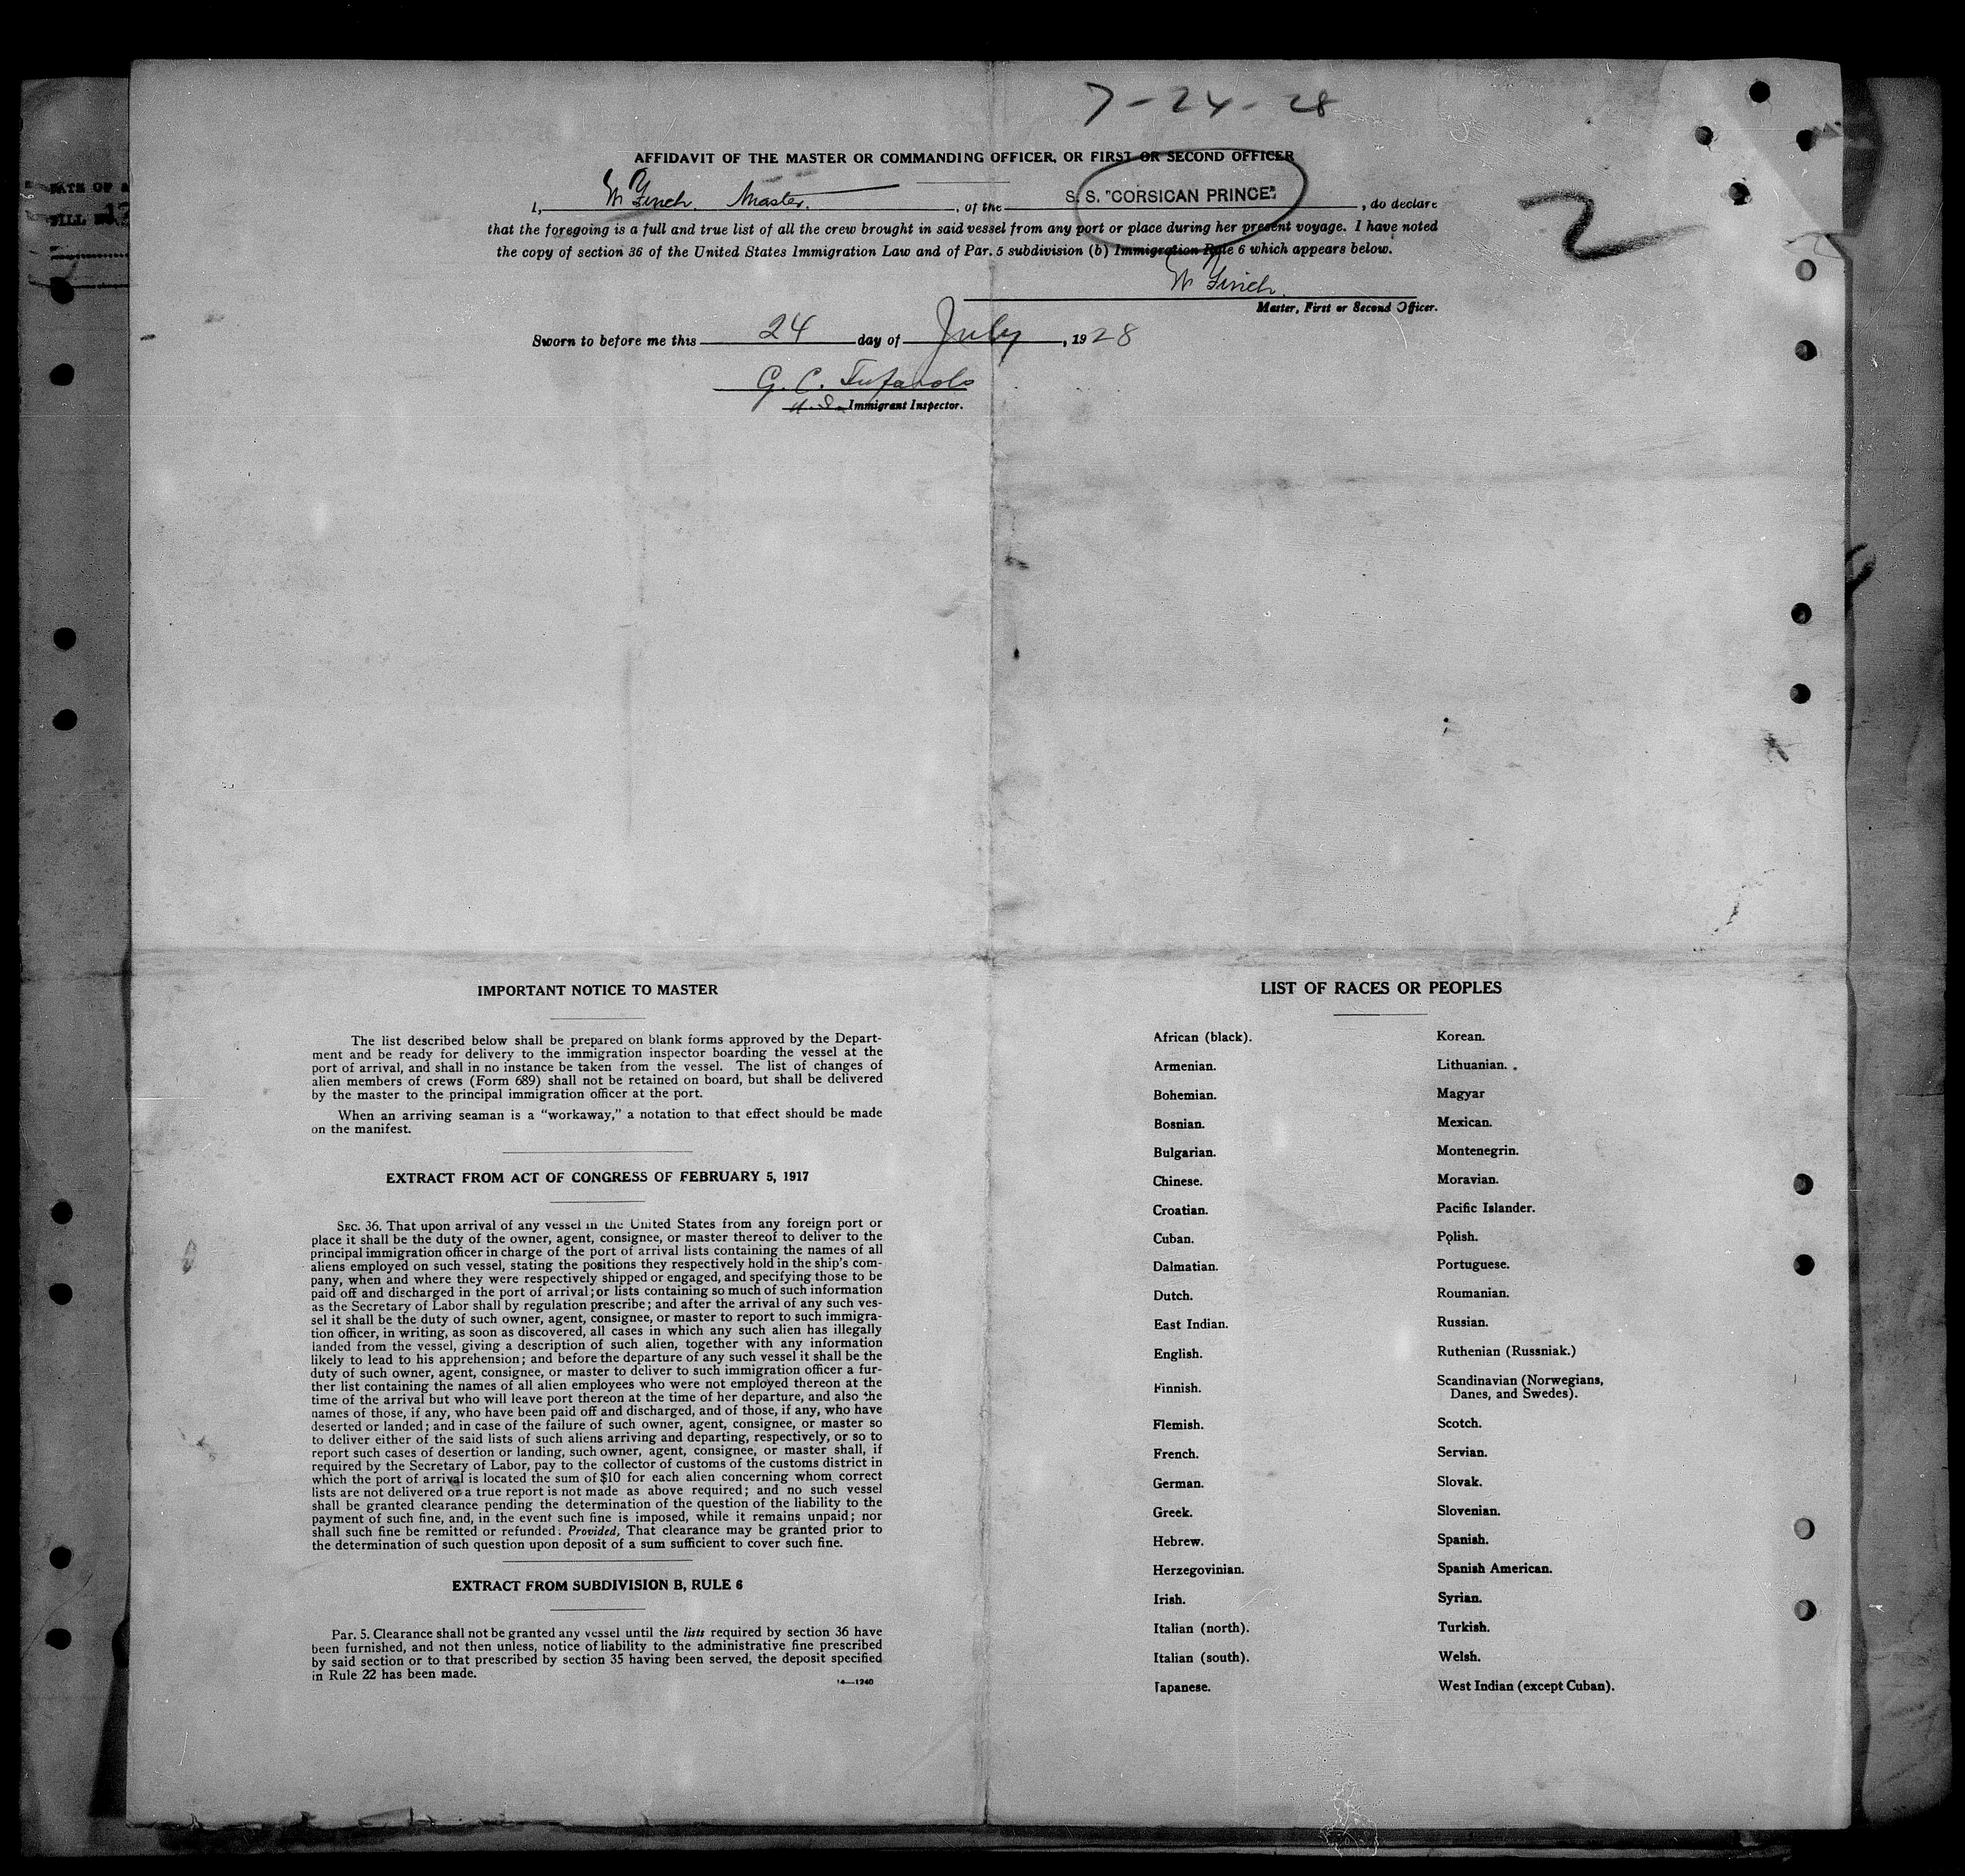 7-24-28
AFFIDAVIT OF THE MASTER OR COMMANDING OFFICER, OR FIRST OR SECOND OFFICER
I, W Finch. Master. , of the S. S. "CORSICAN PRINCE" , do declare
that the foregoing is a full and true list of all the crew brought in said vessel from any port or place during her present voyage. I have noted
the copy of section 36 of the United States Immigration Law and of Par. 5 subdivision (b) Immigration Rule 6 which appears below.
2
W Finch.
Master, First or Second Officer.
Sworn to before me this 24 day of July , 1928
G. C.
U.S. Immigrant Inspector.
DATE OF
IMPORTANT NOTICE TO MASTER
The list described below shall be prepared on blank forms approved by the Depart-
ment and be ready for delivery to the immigration inspector boarding the vessel at the
port of arrival, and shall in no instance be taken from the vessel. The list of changes of
alien members of crews (Form 689) shall not be retained on board, but shall be delivered
by the master to the principal immigration officer at the port.
When an arriving seaman is a "workaway," a notation to that effect should be made
on the manifest.
EXTRACT FROM ACT OF CONGRESS OF FEBRUARY 5, 1917
SEC. 36. That upon arrival of any vessel in the United States from any foreign port or
place it shall be the duty of the owner, agent, consignee, or master thereof to deliver to the
principal immigration officer in charge of the port of arrival lists containing the names of all
aliens employed on such vessel, stating the positions they respectively hold in the ship's com-
pany, when and where they were respectively shipped or engaged, and specifying those to be
paid off and discharged in the port of arrival; or lists containing so much of such information
as the Secretary of Labor shall by regulation prescribe; and after the arrival of any such ves-
sel it shall be the duty of such owner, agent, consignee, or master to report to such immigra-
tion officer, in writing, as soon as discovered, all cases in which any such alien has illegally
landed from the vessel, giving a description of such alien, together with any information
likely to lead to his apprehension; and before the departure of any such vessel it shall be the
duty of such owner, agent, consignee, or master to deliver to such immigration officer a fur-
ther list containing the names of all alien employees who were not employed thereon at the
time of the arrival but who will leave port thereon at the time of her departure, and also the
names of those, if any, who have been paid off and discharged, and of those, if any, who have
deserted or landed; and in case of the failure of such owner, agent, consignee, or master so
to deliver either of the said lists of such aliens arriving and departing, respectively, or so to
report such cases of desertion or landing, such owner, agent, consignee, or master shall, if
required by the Secretary of Labor, pay to the collector of customs of the customs district in
which the port of arrival is located the sum of $10 for each alien concerning whom correct
lists are not delivered or a true report is not made as above required; and no such vessel
shall be granted clearance pending the determination of the question of the liability to the
payment of such fine, and, in the event such fine is imposed, while it remains unpaid; nor
shall such fine be remitted or refunded. Provided, That clearance may be granted prior to
the determination of such question upon deposit of a sum sufficient to cover such fine.
EXTRACT FROM SUBDIVISION B, RULE 6
Par. 5. Clearance shall not be granted any vessel until the lists required by section 36 have
been furnished, and not then unless, notice of liability to the administrative fine prescribed
by said section or to that prescribed by section 35 having been served, the deposit specified
in Rule 22 has been made.
14—1240
LIST OF RACES OR PEOPLES
African (black).
Armenian.
Bohemian.
Bosnian.
Bulgarian.
Chinese.
Croatian.
Cuban.
Dalmatian.
Dutch.
East Indian.
English.
Finnish.
Flemish.
French.
German.
Greek.
Hebrew.
Herzegovinian.
Irish.
Italian (north).
Italian (south).
Japanese.
Korean.
Lithuanian.
Magyar
Mexican.
Montenegrin.
Moravian.
Pacific Islander.
Polish.
Portuguese.
Roumanian.
Russian.
Ruthenian (Russniak.)
Scandinavian (Norwegians,
Danes, and Swedes).
Scotch.
Servian.
Slovak.
Slovenian.
Spanish.
Spanish American.
Syrian.
Turkish.
Welsh.
West Indian (except Cuban).